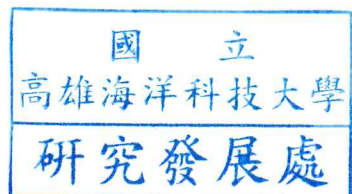 國立
高雄海洋科技大學
研究發展處